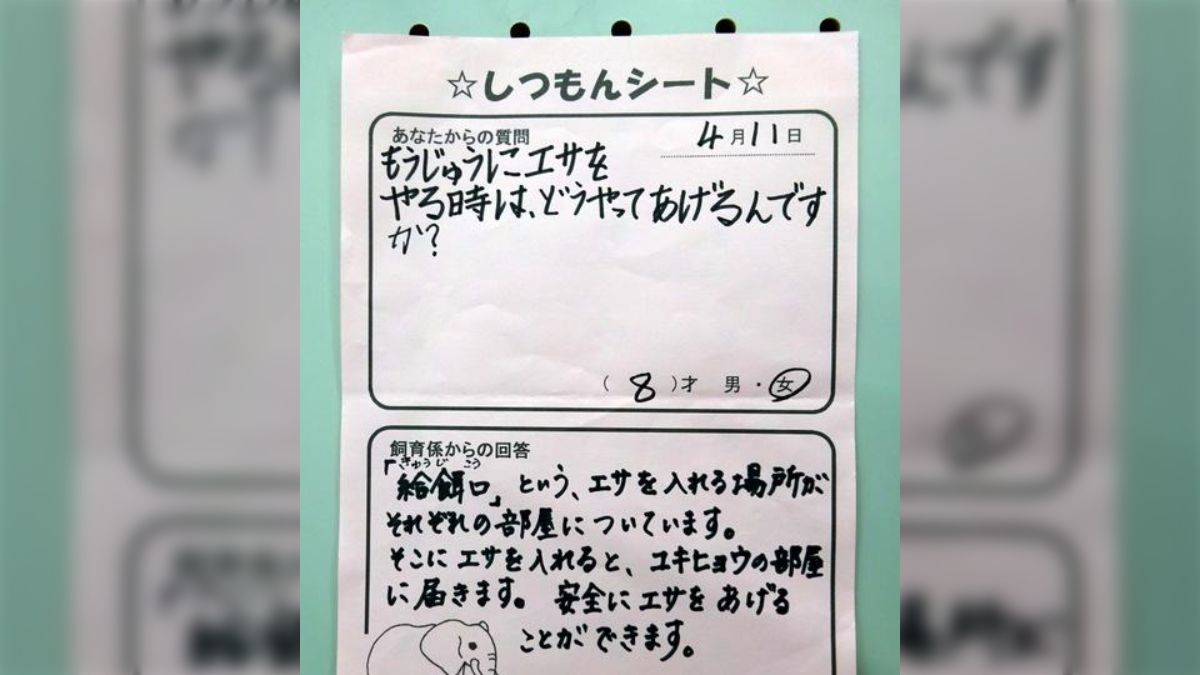 ☆しつもんシート☆
あなたからの質問
4月11日
もうじゅうにエサを
やる時は、どうやってあげるんです
か?
(8)才 男・女
飼育係からの回答
きゅうじ こう
「給餌口」という、エサを入れる場所が
それぞれの部屋についています。
そこにエサを入れると、ユキヒョウの部屋
に届きます。安全にエサをあげる
ことができます。